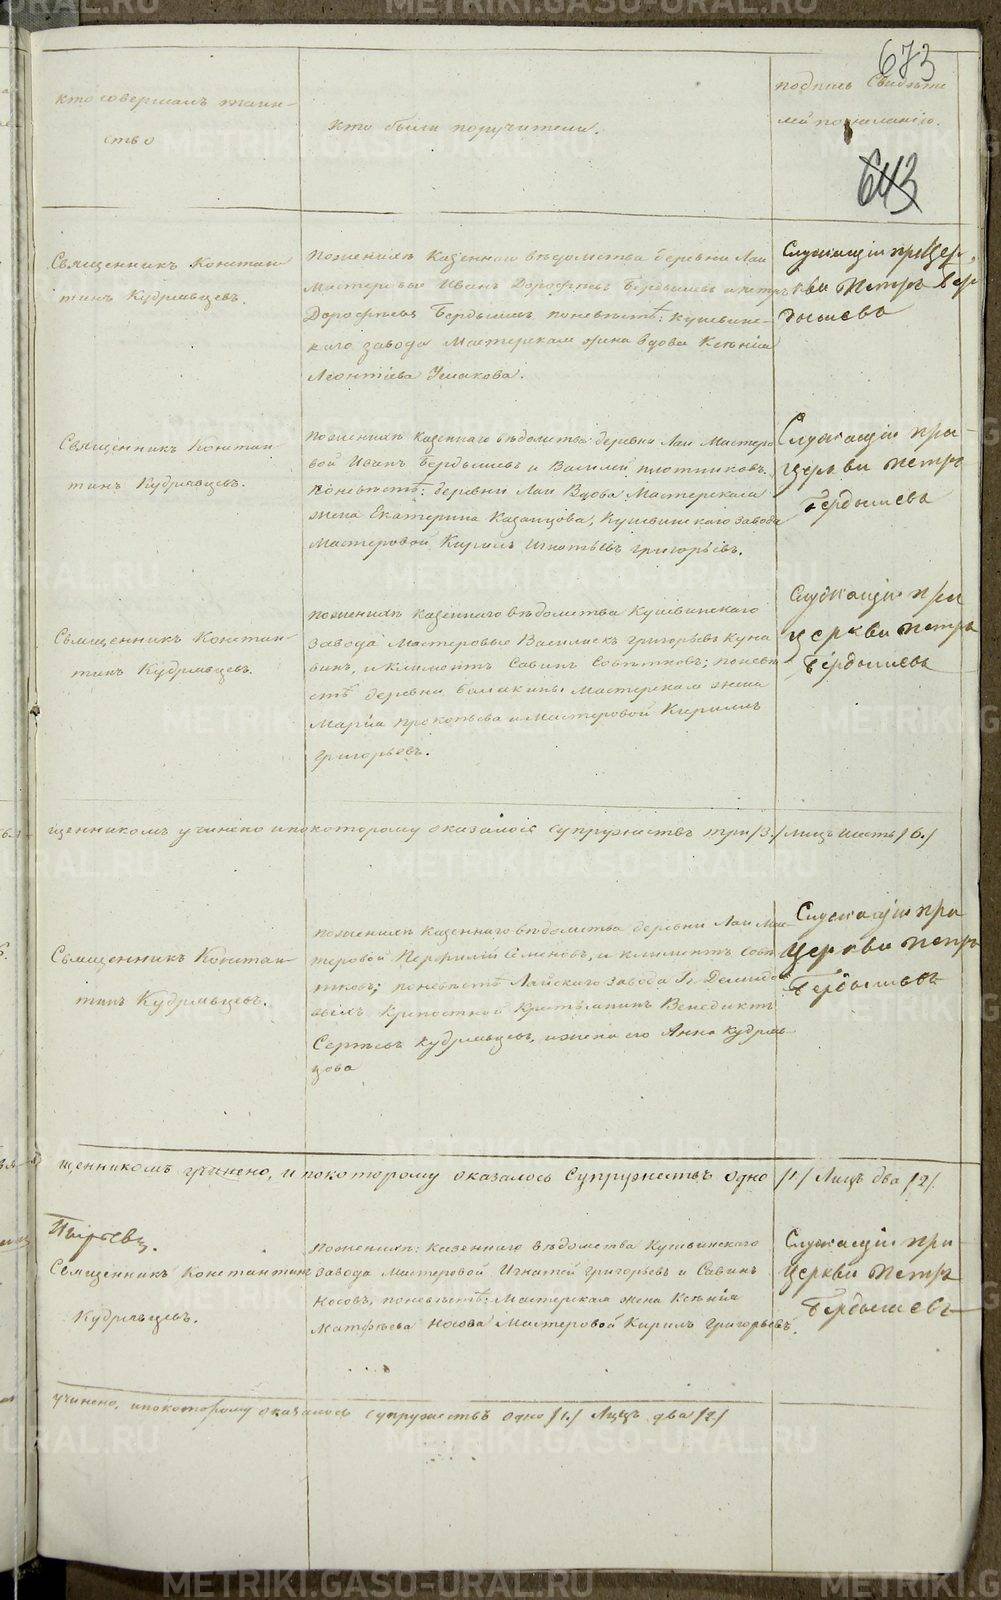 673
кто совершалъ таин-
ство
Кто были поручители.
подпись Свидѣте
лей по желанію.
643
Священникъ Констан
тинъ Кудрявцевъ.
По женихѣ Казеннаго вѣдомства деревни Лаи
Мастеровые Иванъ Дорофѣевъ Бердышевъ и петръ
Дорофѣевъ Бердышевъ, по невѣстѣ: Кушвинс-
каго завода Мастерская жена вдова Ксенія
Леонтіева Ушакова.
Служащій при Цер
кви Петръ Бер
дышевъ
Священникъ Констан
тинъ Кудрявцевъ.
По женихѣ казеннаго вѣдомства деревни Лаи Мастеро
вой Иванъ Бердышевъ и Василей плотниковъ.
По невѣстѣ: деревни Лаи Вдова Мастерская
жена Екатерина Казанцова, Кушвинскаго завода
Мастеровой Кирилъ Игнатьевъ григорьевъ.
Служащій при
Церкви Петръ
Бердышевъ
Священникъ Констан
тинъ Кудрявцевъ.
По женихѣ казеннаго вѣдомства Кушвинскаго
завода Мастеровые Василискъ григорьевъ Куна
винъ, и Климонтъ Савинъ Совѣтковъ; по невѣ
стѣ деревни Балакины Мастерская жена
Марія прокопьева и Мастеровой Кириллъ
григорьевъ.
Служащій при
церкви Петръ
Бердышевъ
щенникомъ учинено и по которому оказалось супружествъ три /3./ Лицъ шесть /6./
Священникъ Констан
тинъ Кудрявцевъ.
По женихѣ казеннаго вѣдомства деревни Лаи Мас
теровой Перфилій Семеновъ, и климентъ Совѣ
тковъ; по невѣстѣ Лайскаго завода Гг. Демидо
выхъ Крепостной Крестьянинъ Венедиктъ
Сергѣевъ Кудрявцевъ, и жена его Анна Кудряв
цова
Служащій при
Церкви Петръ
Бердышевъ
щенникомъ учинено, и по которому оказалось Супружествъ одно /1/ Лицъ два /2/.
Священникъ Константинъ
Кудрявцевъ.
По женихѣ: казеннаго вѣдомства Кушвинскаго
завода Мастеровой Игнатей григорьевъ и Савинъ
Носовъ, по невѣстѣ: Мастерская жена Ксенія
Матфѣева Носова Мастеровой Кирилъ григорьевъ.
Служащій при
Церкви Петръ
Бердышевъ
учинено, и по которому оказалось супружествъ одно /1./ Лицъ два /2/
METRIKI.GASO-URAL.RU